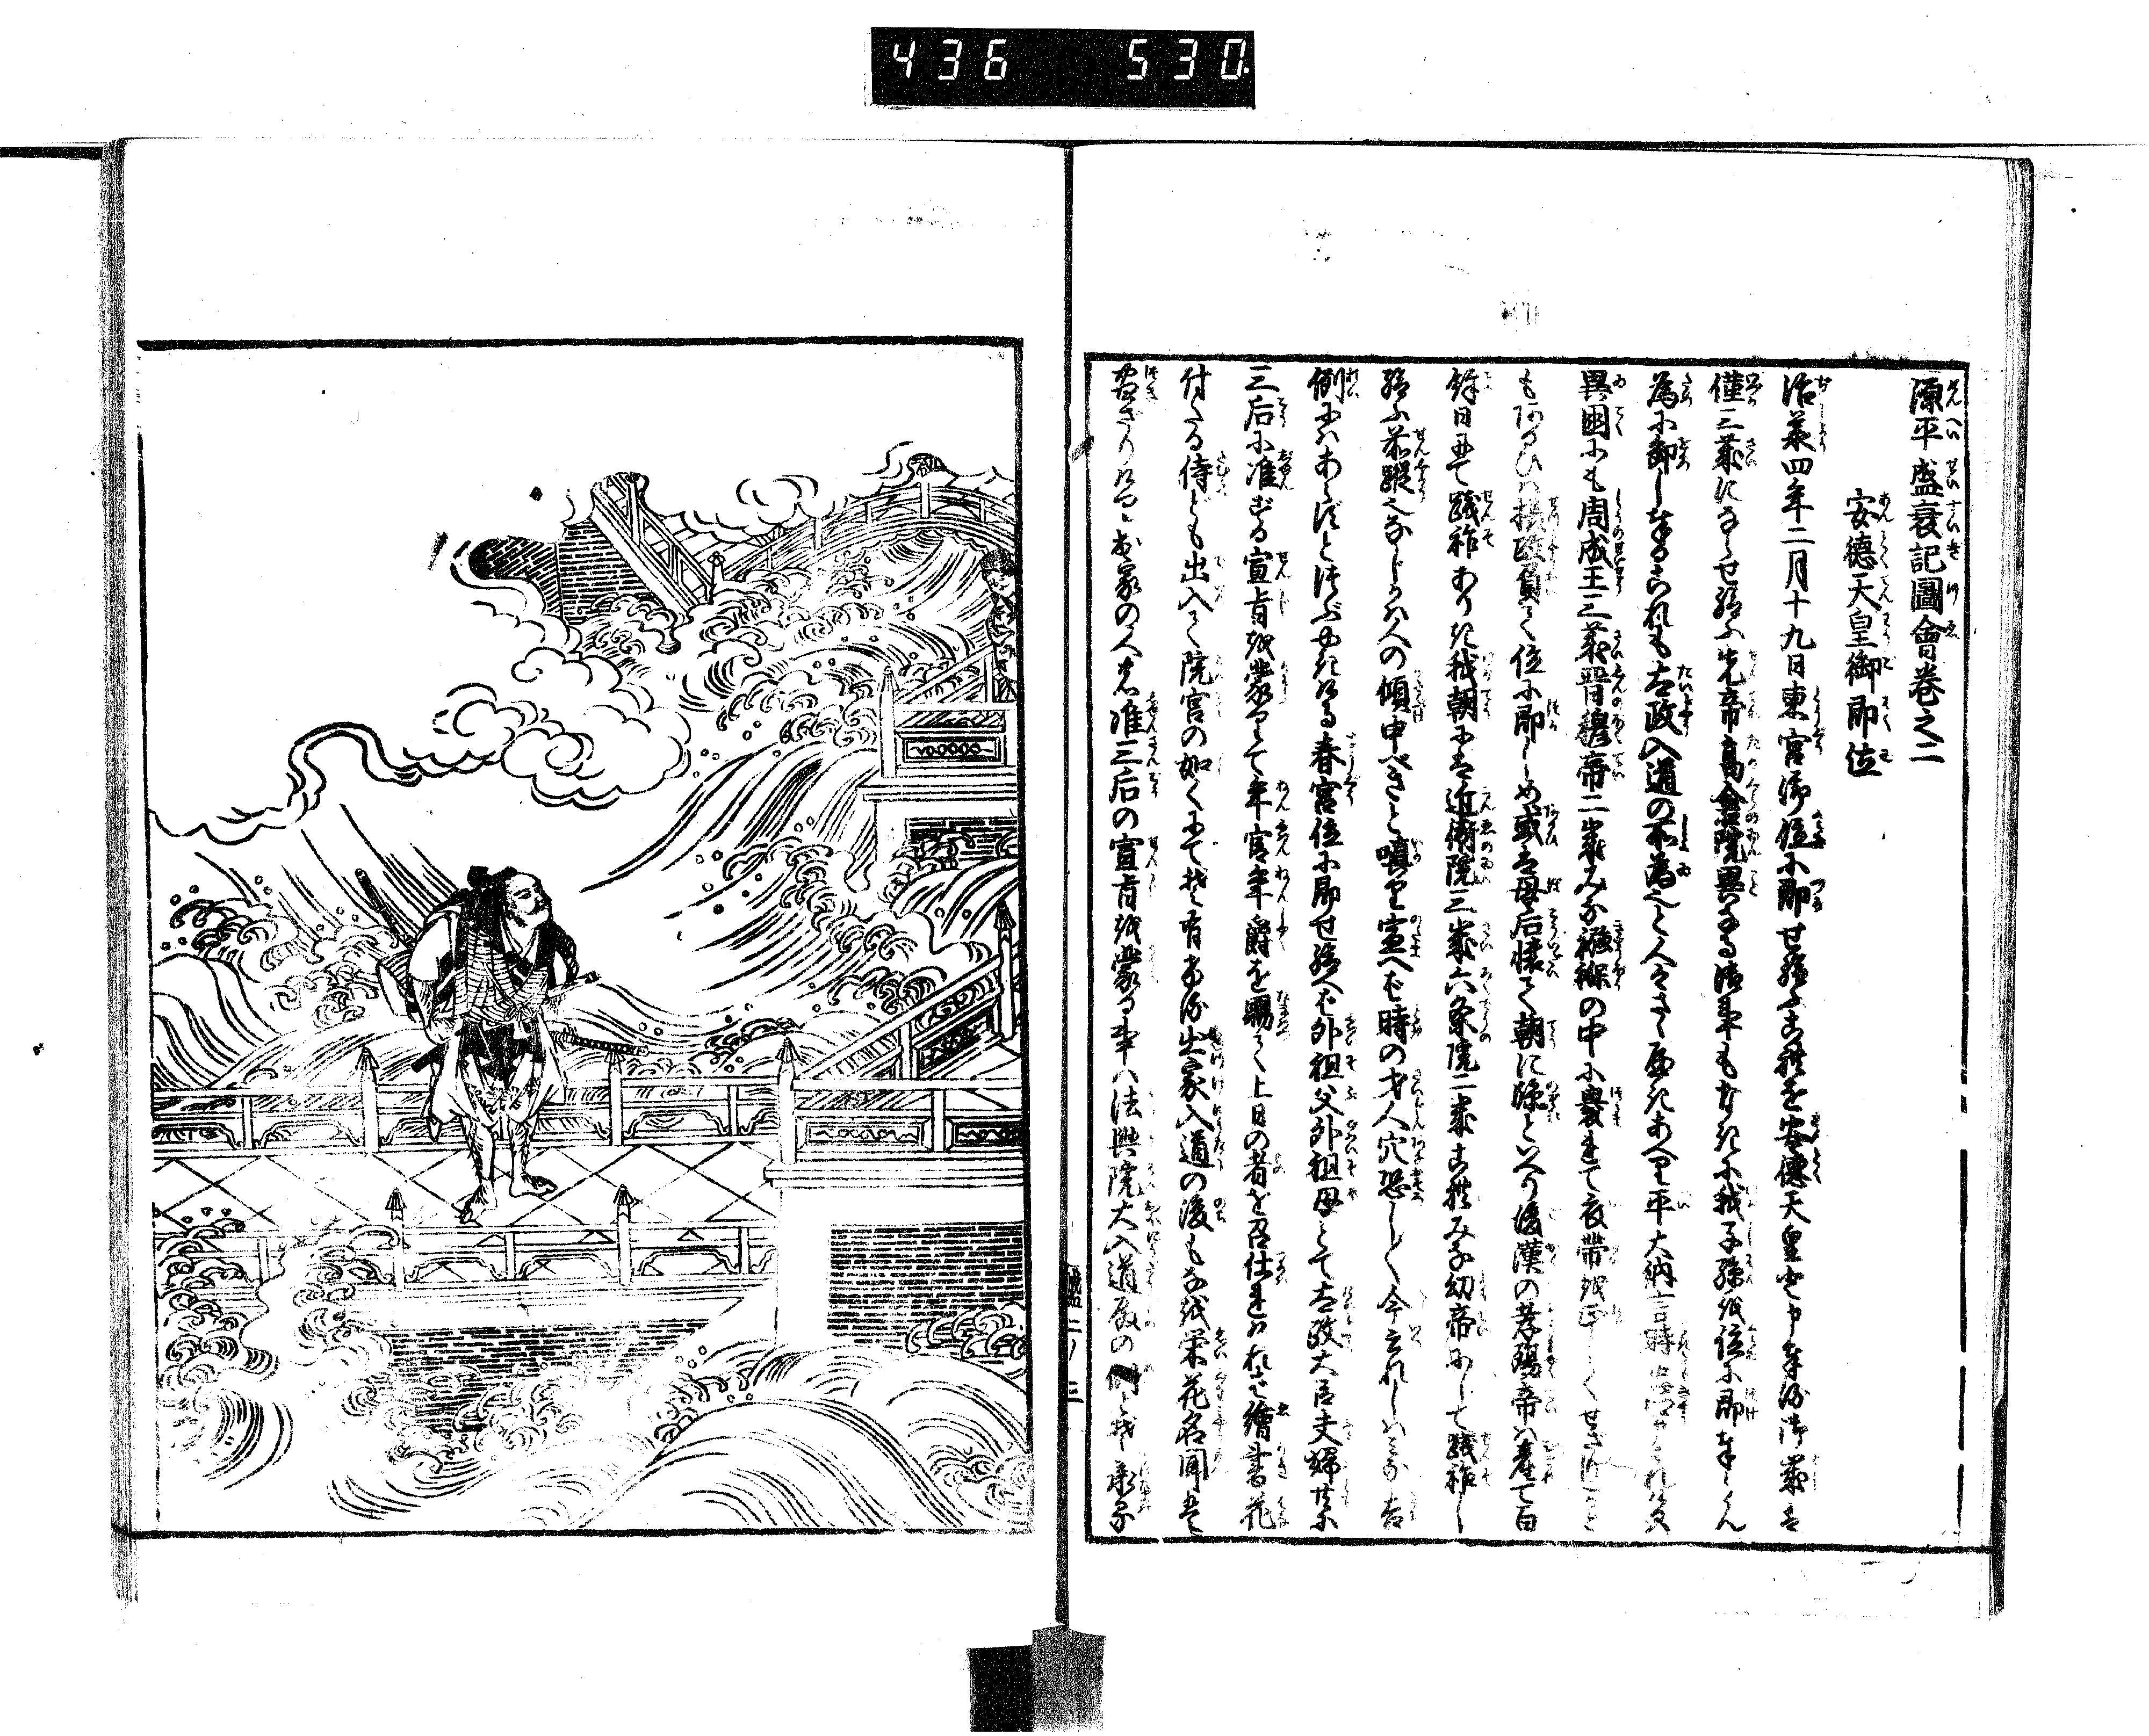 436 530
源平盛衰記圖會巻之二
安德天皇御即位
治承四年二月十九日東宮御位に即せ給ふこれを安德天皇と申奉る御歳は
僅三歳にならせ給ふ先帝高倉院異なる御事もなきに我子孫を位に即奉らん
為に御しまゐるこれも太政入道の所為と人々さゝやきあへり平大納言時忠卿申されけるは
異国にも周成王三歳晋穆帝二歳みな襁褓の中に裹まれて衣帯を正しくせざりしかど
もあるひは摂政負て位に即しめ或は母后懐て朝に臨といへり後漢の孝殤帝は産て百
餘日にて踐祚ありき我朝には近衛院三歳六条院二歳これみな幼帝にして踐祚し
給ふ前蹤也なじかは人の傾申べきと嗔り宣へば時の才人穴恐し〱今これしはみな吉
例にはあらずとつぶやきける春宮位に即せ給へば外祖父外祖母とて太政大臣夫婦共に
三后に准ずる宣旨を蒙りて年官年爵を賜て上日の者を召仕れければ繪書花
付たる侍ども出入て院宮の如くにてぞ有ける出家入道の後もなを栄花名聞は
尽ざりけり出家の人の准三后の宣旨を蒙る事は法興院大入道殿の例とぞ承る
巻二ノ三